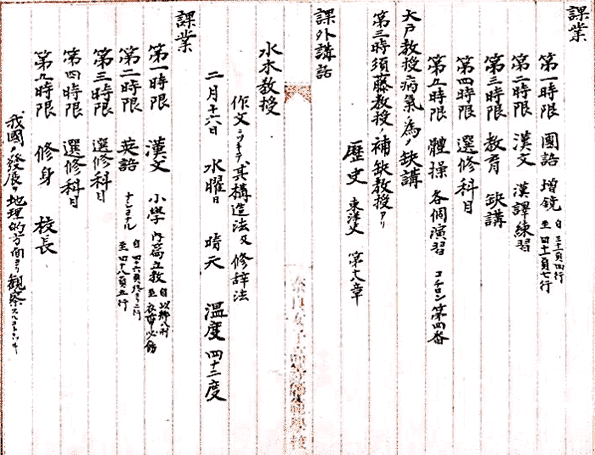 課業
第一時限 國語 増鏡 自三十一頁四行 至四十一頁七行
第二時限 漢文 漢譯練習
第三時限 教育 缺講
第四時限 選修科目
第五時限 體操 各個演習 コチロン第四番
大戸教授病氣ノ為メ缺講
第三時須藤教授ノ補缺教授アリ
歴史 東洋史 第十八章
課外講話
水木教授
作文ニツキテ、其構造法又修辞法
二月十六日 水曜日 晴天 温度 四十二度
課業
第一時限 漢文 小學 内篇立教
第二時限 英語 ナショナル 自四十六頁 至四十八頁五行
第三時限 選修科目
第四時限 選修科目
第五時限 修身 校長
我國ノ發展ヲ地理的方面ヨリ観察